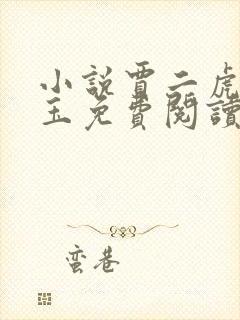 小說賈二虎
玉免費閱讀
蛮巷